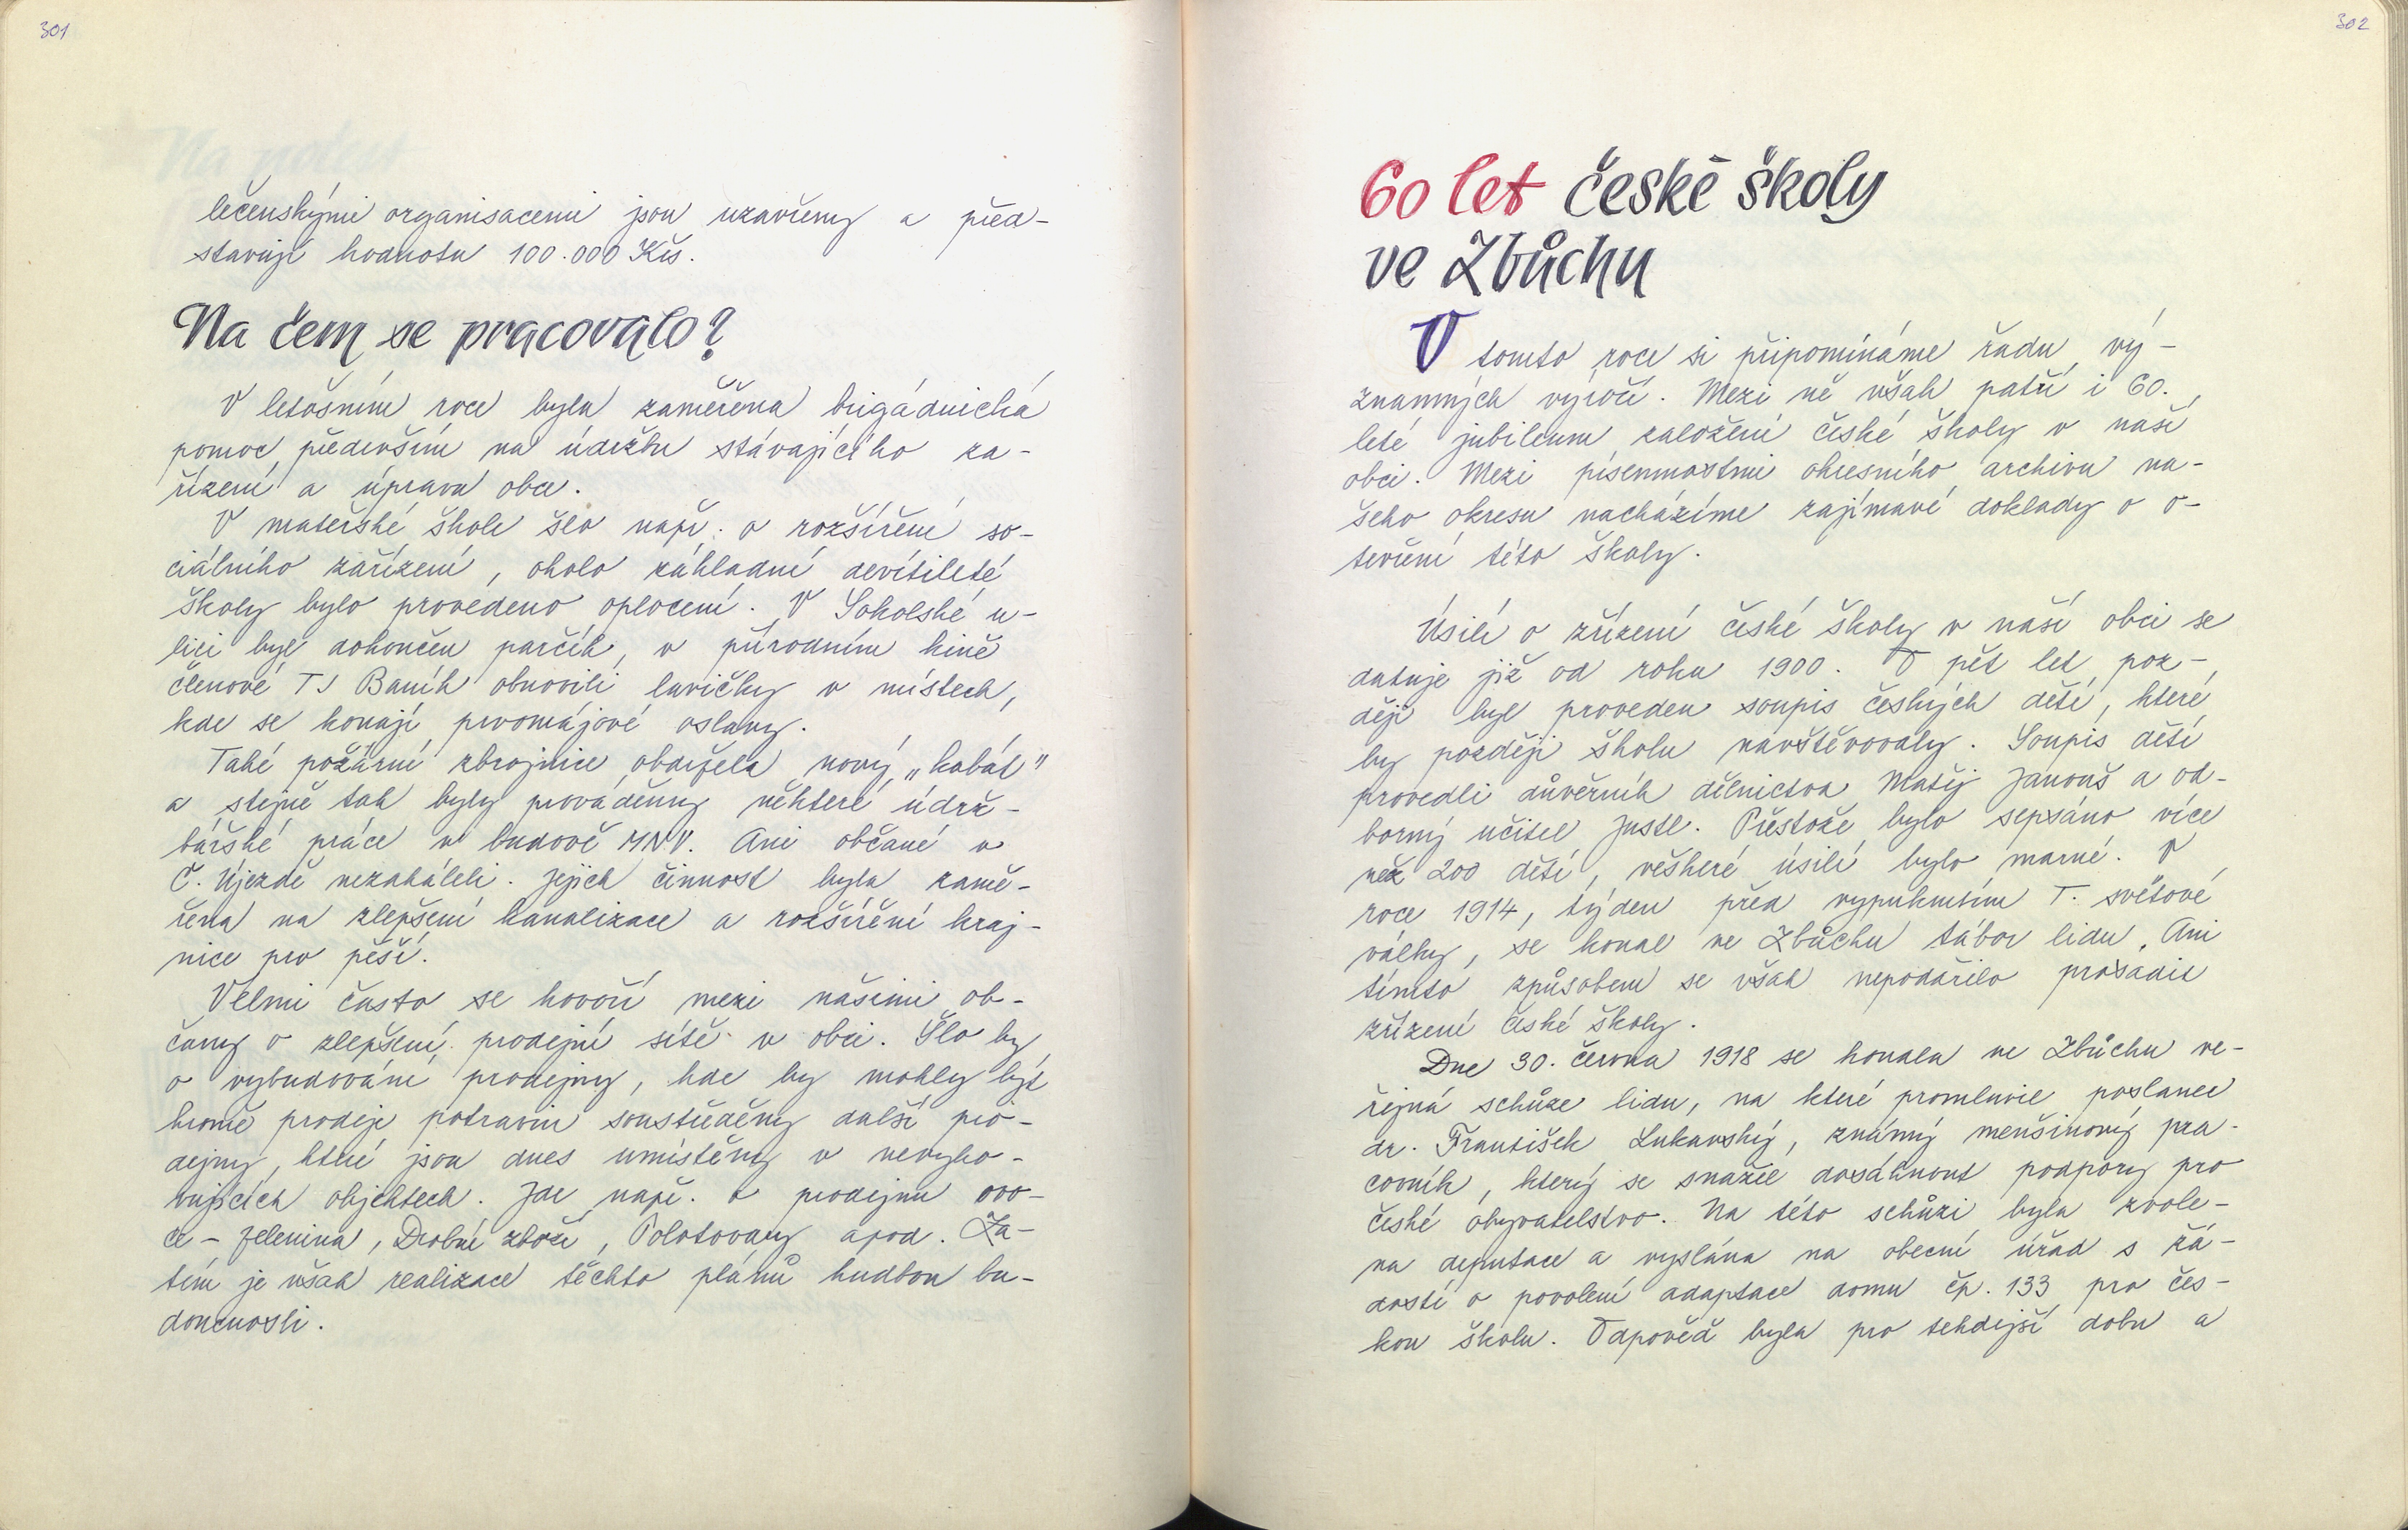 301
lečenskými organisacemi jsou uzavřeny a před-
stavují hodnotu 100.000 Kčs.
Na čem se pracovalo?
V letošním roce byla zaměřena brigádnická
pomoc především na údržbu stávajícího za-
řízení a úpravu obce.
V mateřské škole šlo např. o rozšíření so-
ciálního zařízení, okolo základní devítileté
školy bylo provedeno oplocení. V Sokolské u-
lici byl dokončen parčík, v přírodním kině
členové TJ Baník obnovili lavičky v místech,
kde se konají prvomájové oslavy.
Také požární zbrojnice obdržela nový „kabát"
a stejně tak byly prováděny některé údrž-
bářské práce v budově MNV. Ani občané v
Č. Újezdě nezaháleli. Jejich činnost byla zamě-
řena na zlepšení kanalizace a rozšíření kraj-
nice pro pěší.
Velmi často se hovoří mezi našimi ob-
čany o zlepšení prodejní sítě v obci. Šlo by
o vybudování prodejny, kde by mohly být
kromě prodeje potravin soustředěny další pro-
dejny, které jsou dnes umístěny v nevyho-
vujících objektech. Jde např. o prodejnu ovo-
ce - zelenina, Drobné zboží, Polotovary apod. Za-
tím je však realizace těchto plánů hudbou bu-
doucnosti.
302
60 let české školy
ve Zbůchu
V tomto roce si připomínáme řadu vý-
znamných výročí. Mezi ně však patří i 60.
leté jubileum založení české školy v naší
obci. Mezi písemnostmi okresního archivu na-
šeho okresu nacházíme zajímavé doklady o o-
tevření této školy.
Úsilí o zřízení české školy v naší obci se
datuje již od roku 1900. O pět let poz-
ději byl proveden soupis českých dětí, které
by později školu navštěvovaly. Soupis dětí
provedli důvěrník dělnictva Matěj Janouš a od-
borný učitel Justl. Přestože bylo sepsáno více
než 200 dětí, veškeré úsilí bylo marné. V
roce 1914, týden před vypuknutím I. světové
války, se konal ve Zbůchu tábor lidu. Ani
tímto způsobem se však nepodařilo prosadit
zřízení české školy.
Dne 30. června 1918 se konala ve Zbůchu ve-
řejná schůze lidu, na které promluvil poslanec
dr. František Lukavský, známý menšinový pra-
covník, který se snažil dosáhnout podpory pro
české obyvatelstvo. Na této schůzi byla zvole-
na deputace a vyslána na obecní úřad s žá-
dostí o povolení adaptace domu čp. 133 pro čes-
kou školu. Odpověď byla pro tehdejší dobu a